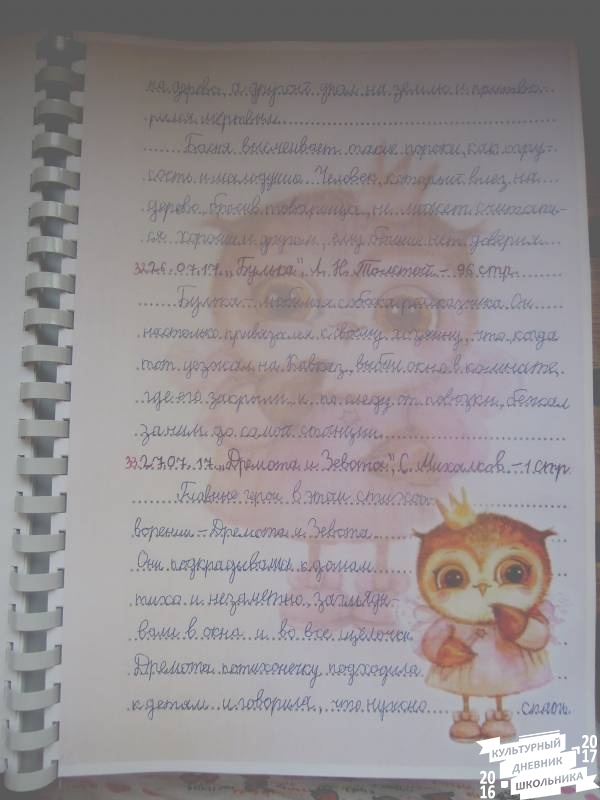 на дерево, а другой упал на землю и притво-
рился мёртвым.
Басня высмеивает такие пороки, как тру-
сость и малодушие. Человек, который влез на
дерево, бросив товарища, не может считать-
ся хорошим другом, ему больше нет доверия.
32 26.07.17. „Булька", Л. Н. Толстой - 96 стр.
Булька - любимая собака рассказчика. Он
настолько привязался к своему хозяину, что когда
тот уезжал на Кавказ, выбил окно в комнате,
где его закрыли и по следу от повозки, бежал
за ним до самой станции.
33 27.07.17. „Дремота и Зевота", С. Михалков - 1 стр.
Главные герои в этом стихот-
ворении - Дремота и Зевота.
Они подкрадывались к домам
тихо и незаметно, загляды-
вали в окна и во все щёлочки.
Дремота потихонечку подходила
к детям и говорила, что нужно спать.
КУЛЬТУРНЫЙ
ДНЕВНИК
ШКОЛЬНИКА
2016
2017